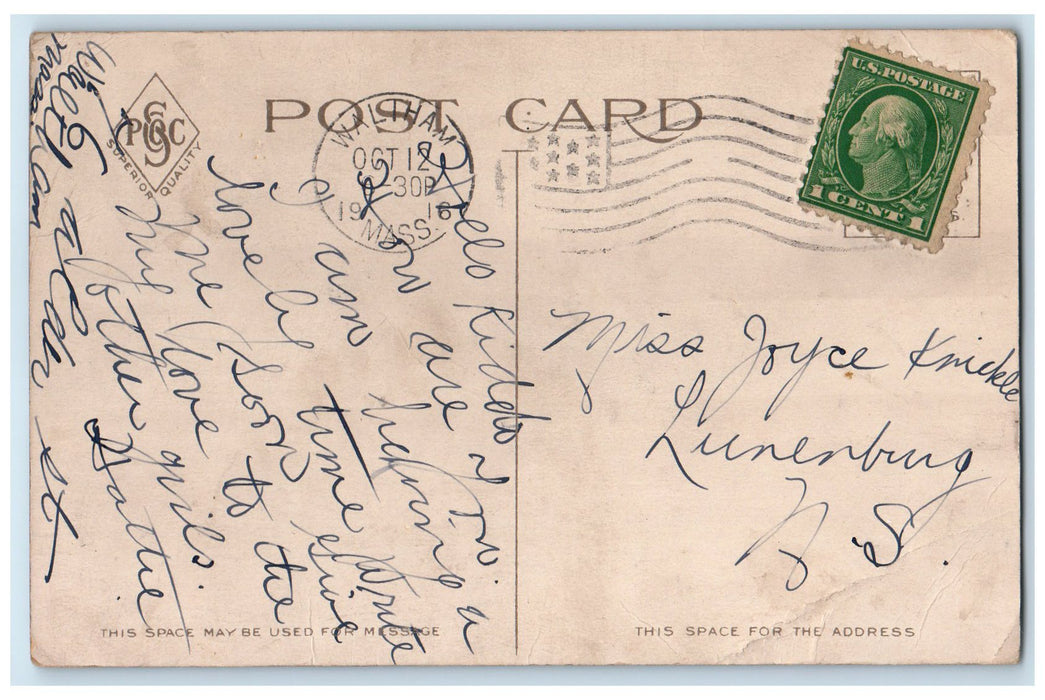 POST CARD
PSCC
SUPERIOR QUALITY
WALTHAM
OCT 12
-30P
1916
MASS.
U.S. POSTAGE
1 CENT 1
Hello Kiddo
How are you.
I am having a
lovely time Write
me soon give
My love to the
other girls.
Hattie
6 Alder St
Waltham
Mass
Miss Joyce Knickle
Lunenburg
N S.
THIS SPACE MAY BE USED FOR MESSAGE
THIS SPACE FOR THE ADDRESS